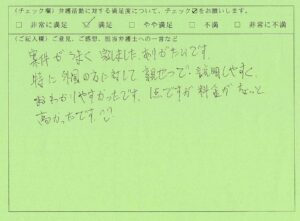 (チェック欄) 弁護活動に対する満足度について、チェック☑をお願いします。
□ 非常に満足 ☑ 満足 □ やや満足 □ 不満 □ 非常に不満
(ご記入欄) ご意見、ご感想、担当弁護士への一言など
案件がうまく 致しました、ありがたいです。
特に外国の方に対して 親せつで・説明しやすく、
わかりやすかったです。1点ですが 料金がちょっと
高かったです